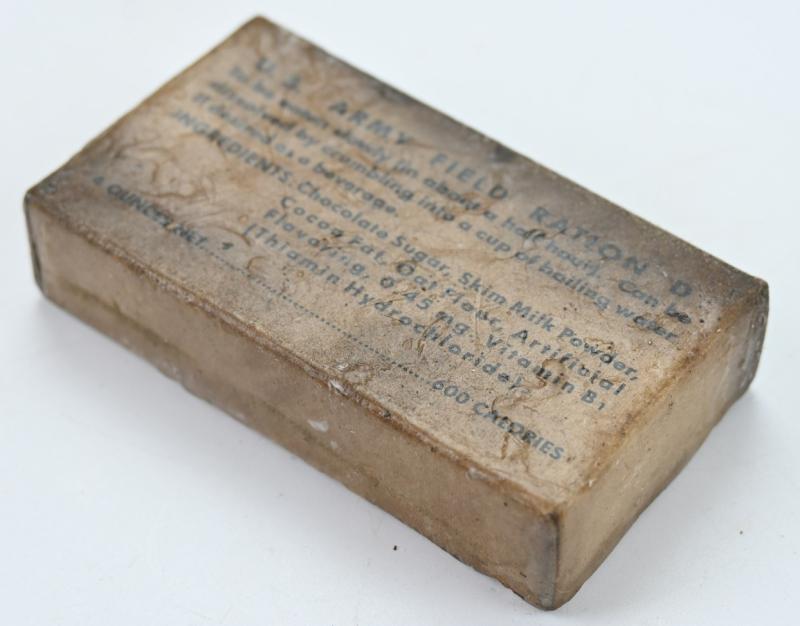 U.S. ARMY FIELD RATION D
To be eaten slowly (in about a half hour). Can be
dissolved by crumbling into a cup of boiling water
if desired as a beverage.
INGREDIENTS: Chocolate Sugar, Skim Milk Powder,
Cocoa Fat, Oat Flour, Artificial
Flavoring, 0.45 mg. Vitamin B1
(Thiamin Hydrochloride).
4 OUNCES NET. 600 CALORIES